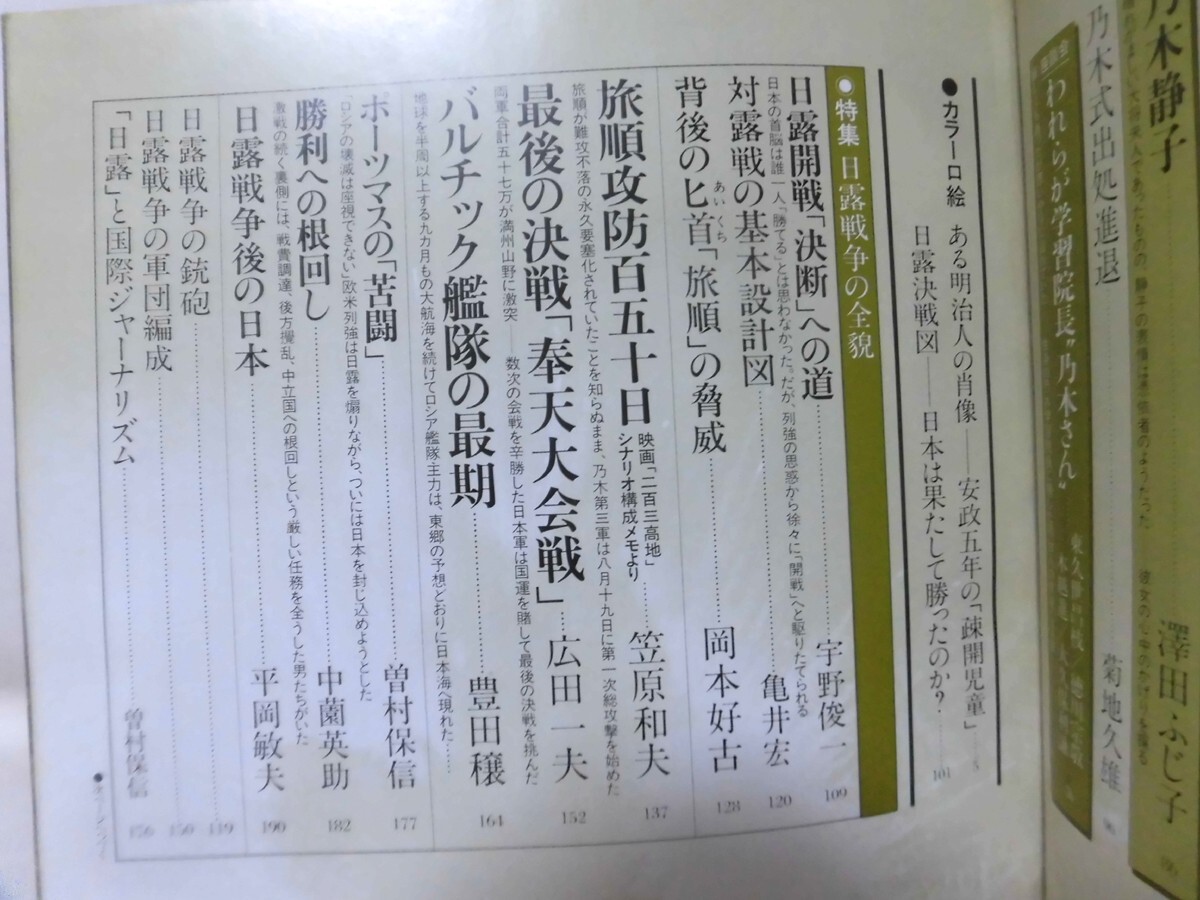 乃木静子
澤田ふじ子
乃木式出処進退
菊地久雄
96
座談会
われらが学習院長"乃木さん"
●カラー口絵
ある明治人の肖像――安政五年の「疎開児童」
日露決戦図――日本は果たして勝ったのか?
101
●特集 日露戦争の全貌
日露開戦「決断」への道 宇野俊一 109
日本の首脳は誰一人〝勝てる〟とは思わなかった。だが、列強の思惑から徐々に「開戦」へと駆りたてられる
対露戦の基本設計図 亀井宏 120
背後の匕首「旅順」の脅威 岡本好古 128
あいくち
旅順攻防百五十日 映画「二百三高地」シナリオ構成メモより 笠原和夫 137
旅順が難攻不落の永久要塞化されていたことを知らぬまま、乃木第三軍は八月十九日に第一次総攻撃を始めた
最後の決戦「奉天大会戦」 広田一夫 152
両軍合計五十七万が満州山野に激突――数次の会戦を辛勝した日本軍は国運を賭して最後の決戦を挑んだ
バルチック艦隊の最期 豊田穣 164
地球を半周以上する九カ月もの大航海を続けてロシア艦隊主力は、東郷の予想どおりに日本海へ現れた……
ポーツマスの「苦闘」 曽村保信 177
「ロシアの壊滅は座視できない」欧米列強は日露を煽りながら、ついには日本を封じ込めようとした
勝利への根回し 中薗英助 182
激戦の続く裏側には、戦費調達、後方攪乱、中立国への根回しという厳しい任務を全うした男たちがいた
日露戦争後の日本 平岡敏夫 190
日露戦争の銃砲 119
日露戦争の軍団編成 150
「日露」と国際ジャーナリズム 曽村保信 156